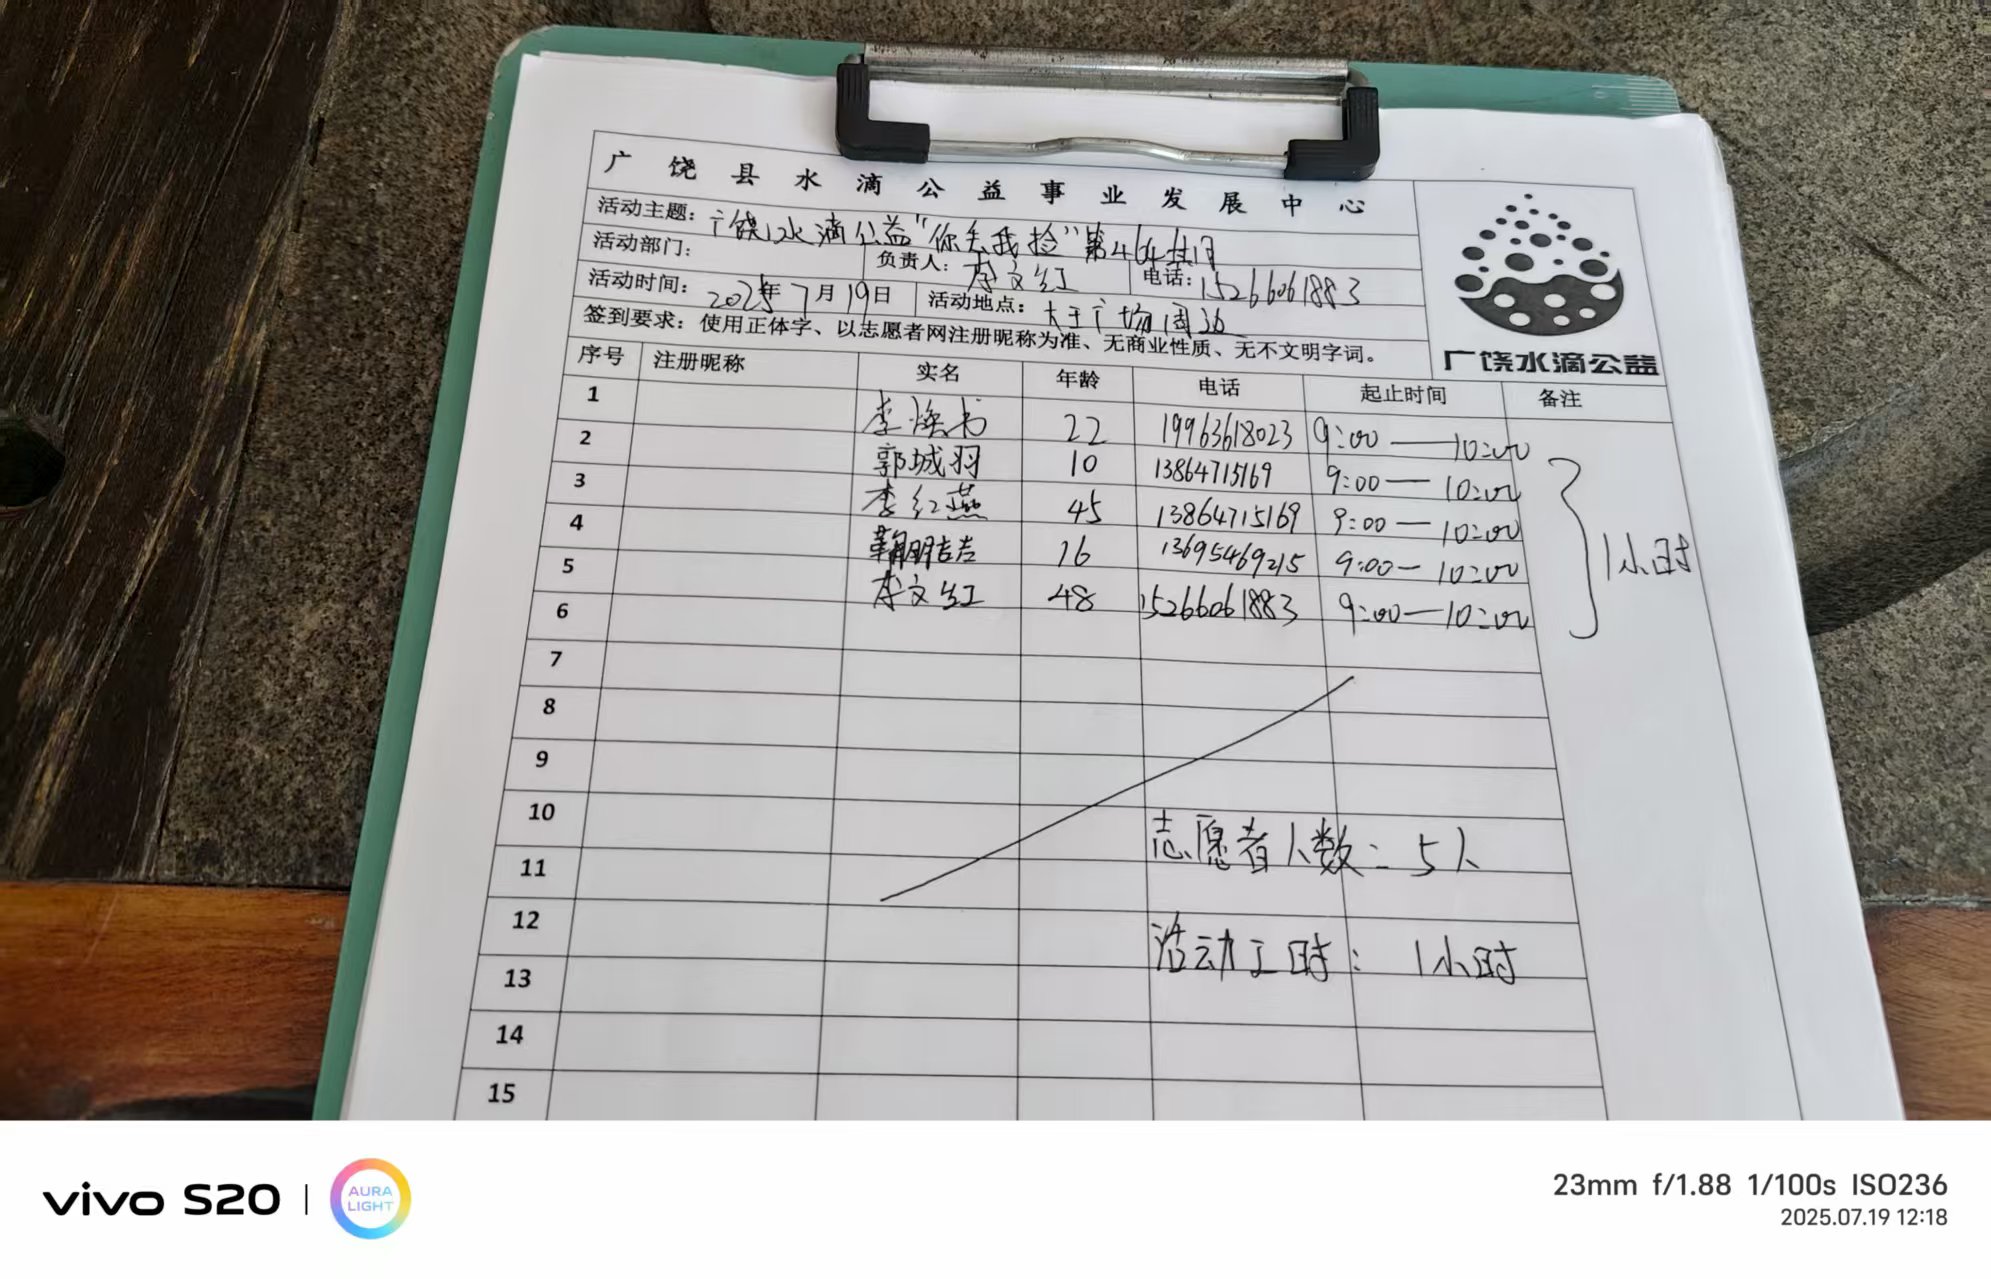 广饶县水滴公益事业发展中心
活动主题：广饶水滴公益"你丢我捡"第464期
活动部门： 负责人：李文红 电话：15266061883
活动时间：2025年7月19日 活动地点：大王广场周边
签到要求：使用正体字、以志愿者网注册昵称为准、无商业性质、无不文明字词。
广饶水滴公益
序号 注册昵称 实名 年龄 电话 起止时间 备注
1 李焕书 22 19963618023 9:00—10:00
2 郭城羽 10 13864715169 9:00—10:00
3 李红燕 45 13864715169 9:00—10:00
4 16 13695469215 9:00—10:00
5 李文红 48 15266061883 9:00—10:00
1小时
6
7
8
9
10 志愿者人数：5人
11
12 活动工时：1小时
13
14
15
vivo S20 | AURA LIGHT
23mm f/1.88 1/100s ISO236
2025.07.19 12:18